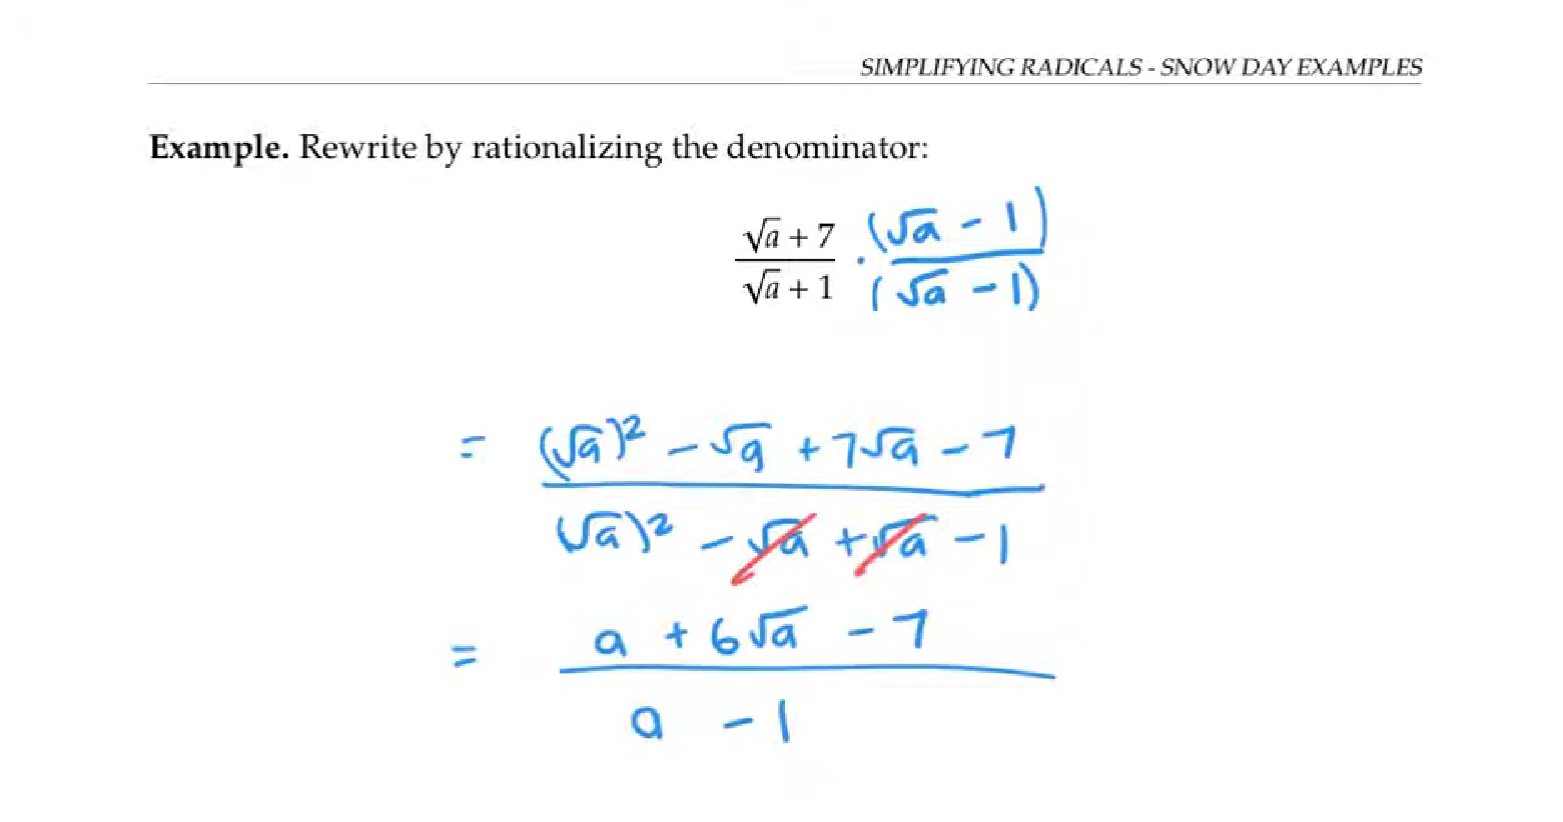 SIMPLIFYING RADICALS - SNOW DAY EXAMPLES
Example. Rewrite by rationalizing the denominator:
√a + 7 (√a - 1)
—— · ——
√a + 1 (√a - 1)
= (√a)² - √a + 7√a - 7
——
(√a)² - √a + √a - 1
= a + 6√a - 7
——
a - 1